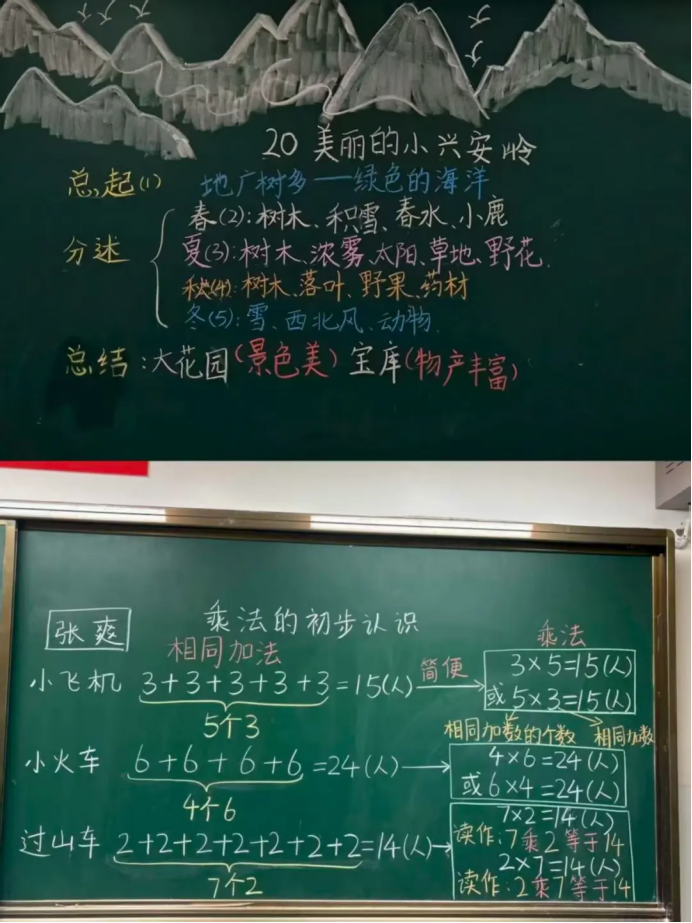 20 美丽的小兴安岭
总起(1) 地广树多——绿色的海洋
分述
春(2):树木、积雪、春水、小鹿
夏(3):树木、浓雾、太阳、草地、野花
秋(4):树木、落叶、野果、药材
冬(5):雪、西北风、动物
总结:大花园(景色美)宝库(物产丰富)
张爽
乘法的初步认识
相同加法
乘法
小飞机 3+3+3+3+3=15(人) 简便 3×5=15(人)
或5×3=15(人)
5个3
相同加数的个数 相同加数
小火车 6+6+6+6=24(人) 4×6=24(人)
或6×4=24(人)
4个6
7×2=14(人)
过山车 2+2+2+2+2+2+2=14(人) 读作:7乘2等于14
2×7=14(人)
7个2
读作:2乘7等于14